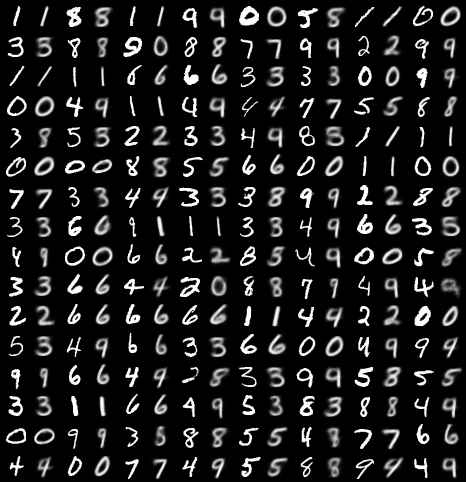 1 1 8 8 1 1 9 9 0 0 5 8 1 1 0 0
3 5 8 8 9 0 8 8 7 7 9 9 2 2 9 9
1 1 1 1 6 6 6 6 3 3 3 3 0 0 9 9
0 0 4 9 1 1 4 9 4 4 7 7 5 5 8 8
3 8 5 3 2 2 3 3 4 9 8 5 1 1 1 1
0 0 0 0 8 8 5 5 6 6 0 0 1 1 0 0
7 7 3 3 4 4 3 3 3 8 9 9 2 2 8 8
3 3 6 6 9 1 1 1 3 3 4 9 6 6 3 5
4 9 0 0 6 6 2 2 8 5 4 9 0 0 5 8
3 3 6 6 4 4 2 0 8 8 7 9 4 9 4
2 2 6 6 6 6 6 6 1 1 4 4 2 2 0 0
5 3 4 9 6 6 3 3 6 6 0 0 4 9 9 9
9 9 6 6 4 4 2 8 3 3 9 9 5 8 5 5
3 3 1 1 6 6 4 9 5 3 8 3 8 8 4 9
0 0 9 9 3 5 8 8 5 5 4 9 7 7 6 6
4 4 0 0 7 7 4 9 5 5 8 8 9 4 4 9